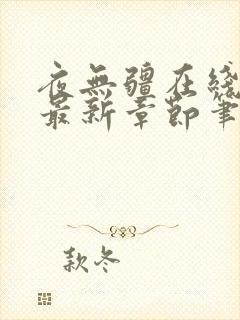 夜無疆在綫
最新章節筆
款冬